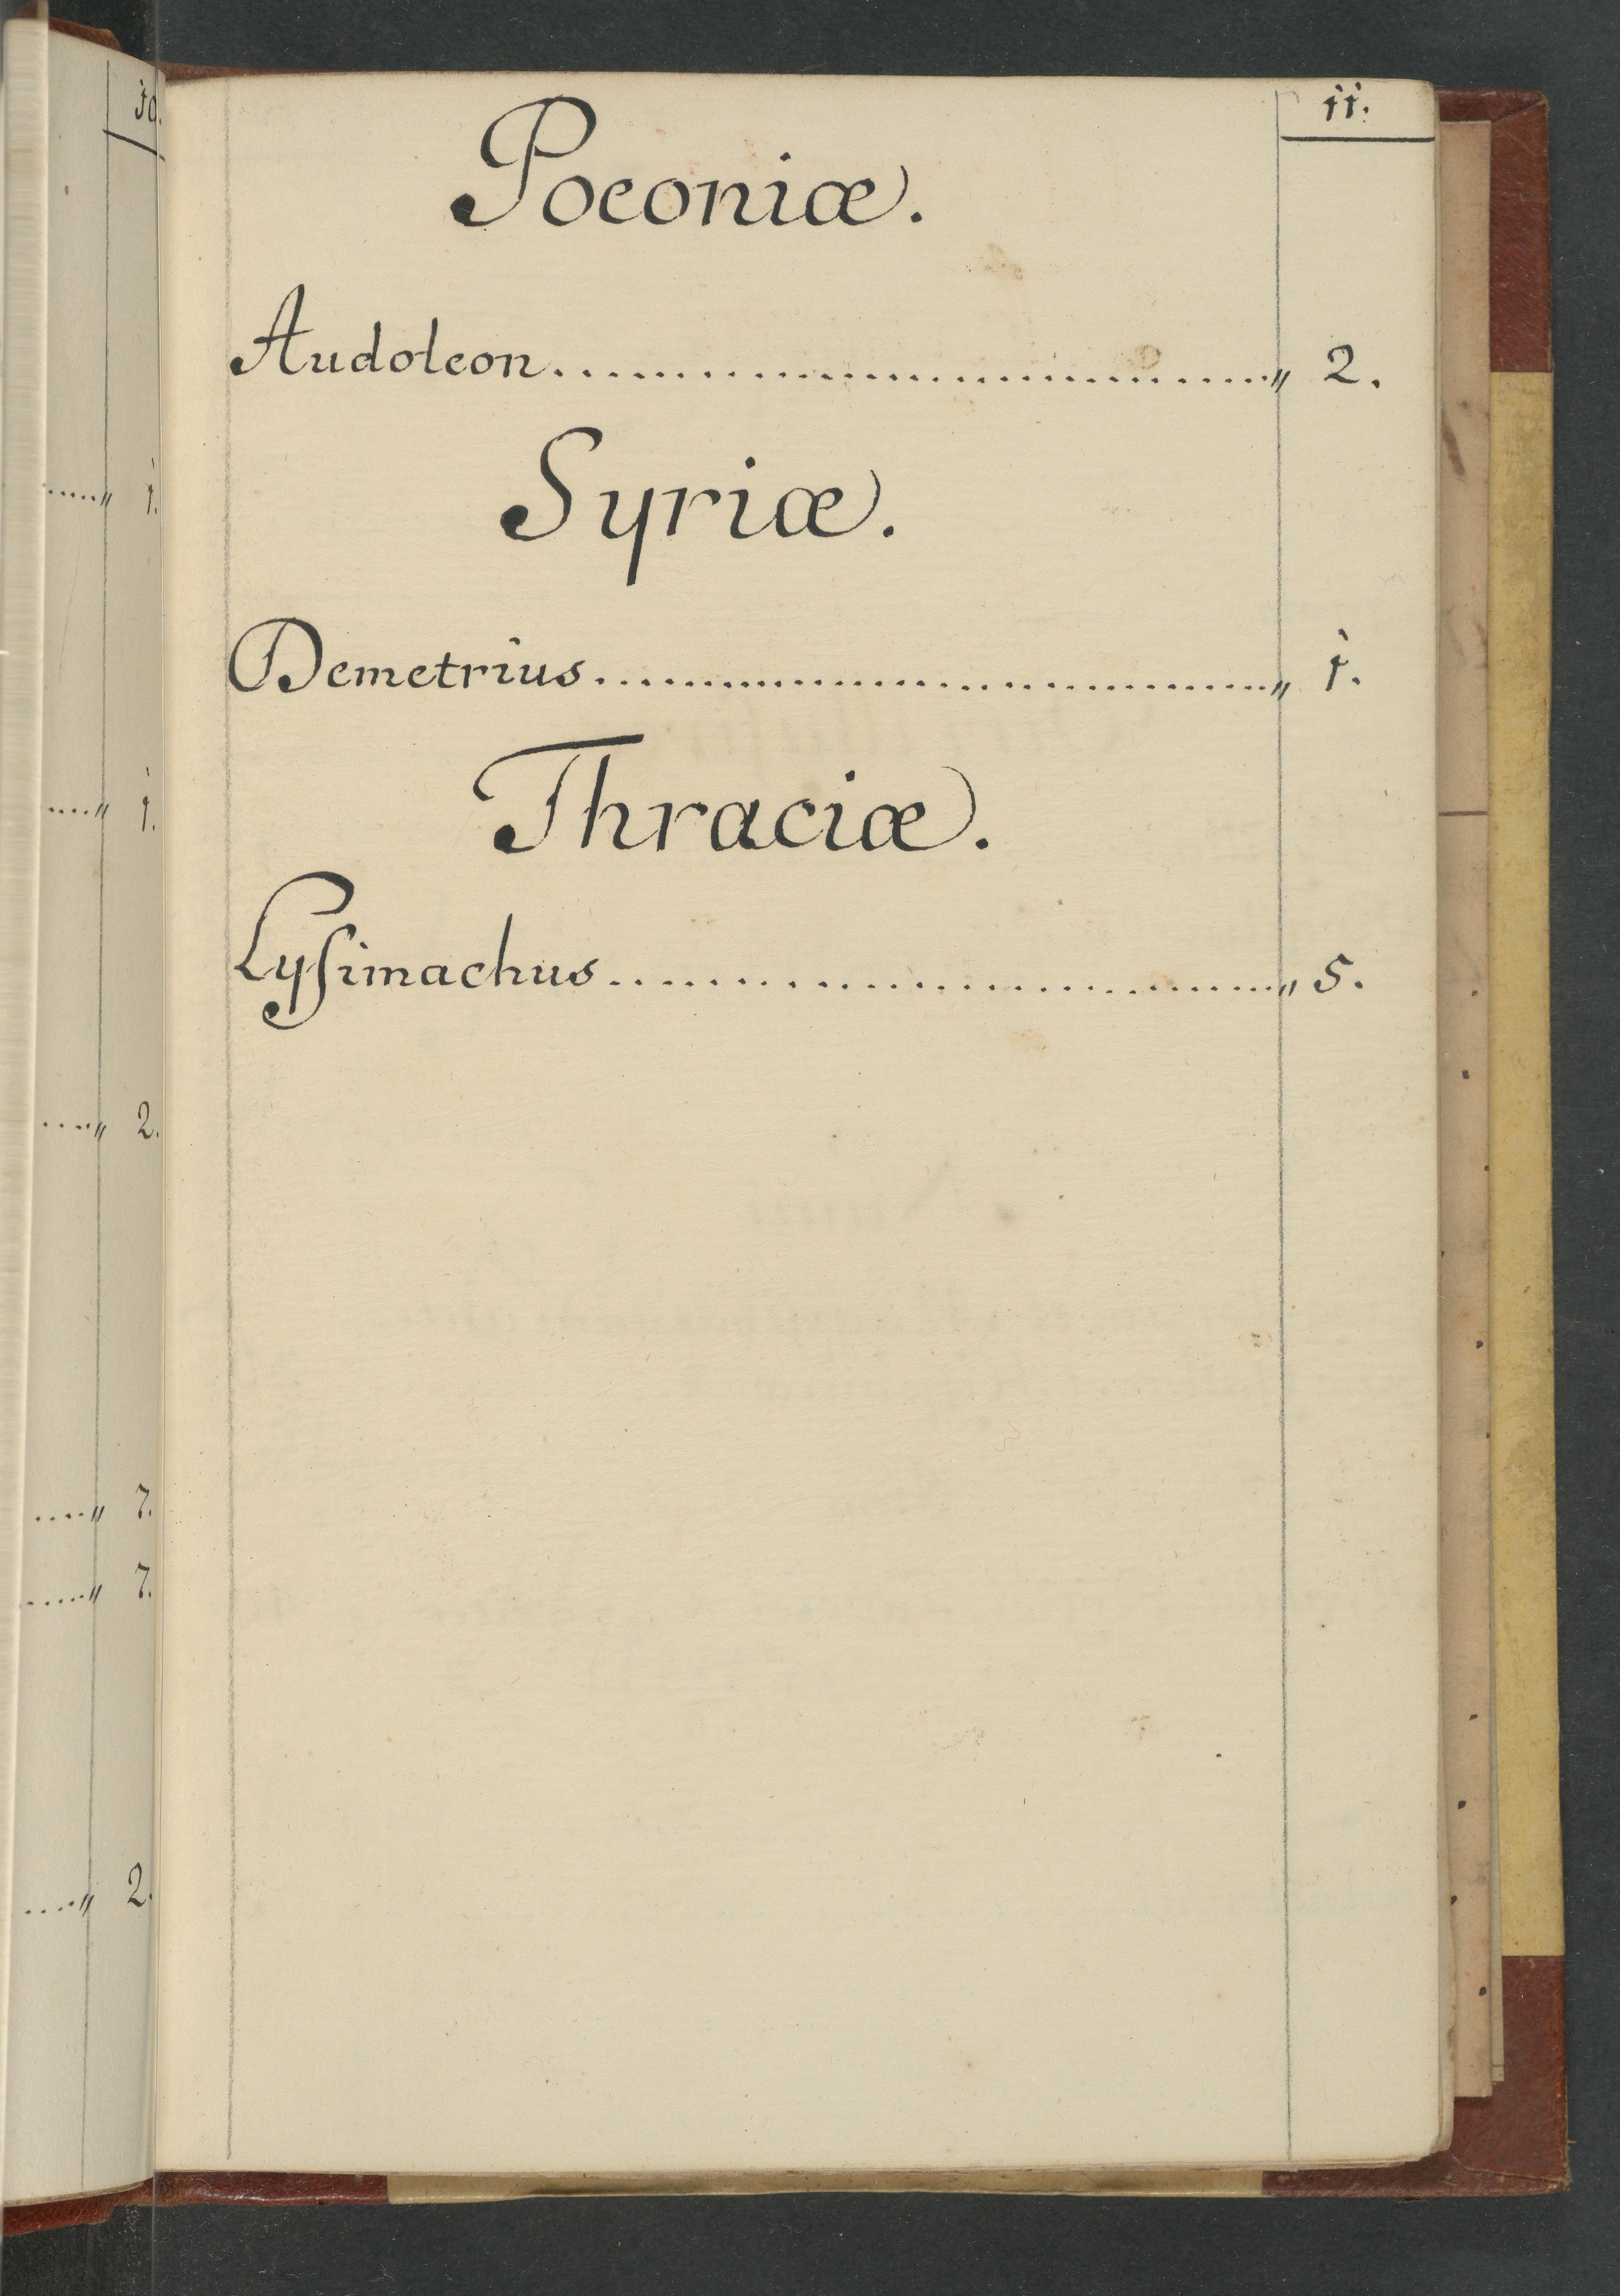 10.
1.
1.
2.
7.
7.
2.
11.
Poeoniæ.
Audoleon..............................„ 2.
Syriæ.
Demetrius..............................„ 1.
Thraciæ.
Lyſimachus..............................„ 5.